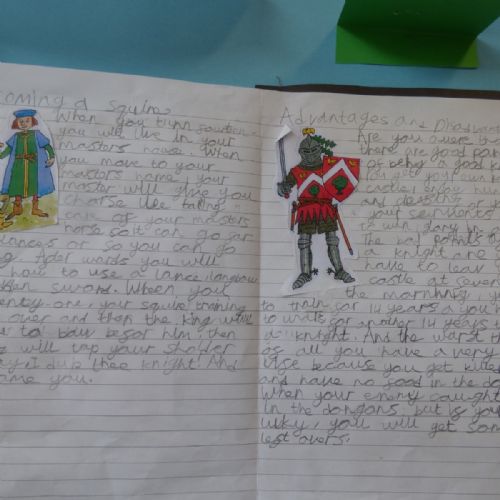 coming a squire
When you turn fourteen
you will live in your
masters house. When
you move to your
masters home your
master will give you
charse like taking
care of your masters
horse so it can go for
or so you can go
After words you will
how to use a lance, longbow
sword. When you
twenty-one your squire training
over and then the king will
to bow befor him, then
will tap your sholder
I dub thee knight! And
you.
Advantages and
Are you
there are good
of being a
you get your own
castle, enjoy
and
your servants
to win glory in
The bad points
a knight are
have to leave
castle at seven
the morning
to train for 14 years a
to wait for another 14 years
a knight. And the worst
of all you have a very
because you get killed
and have no food in the
When your enemy caught
In the dongons, but if you
lukey, you will get som
left overs.